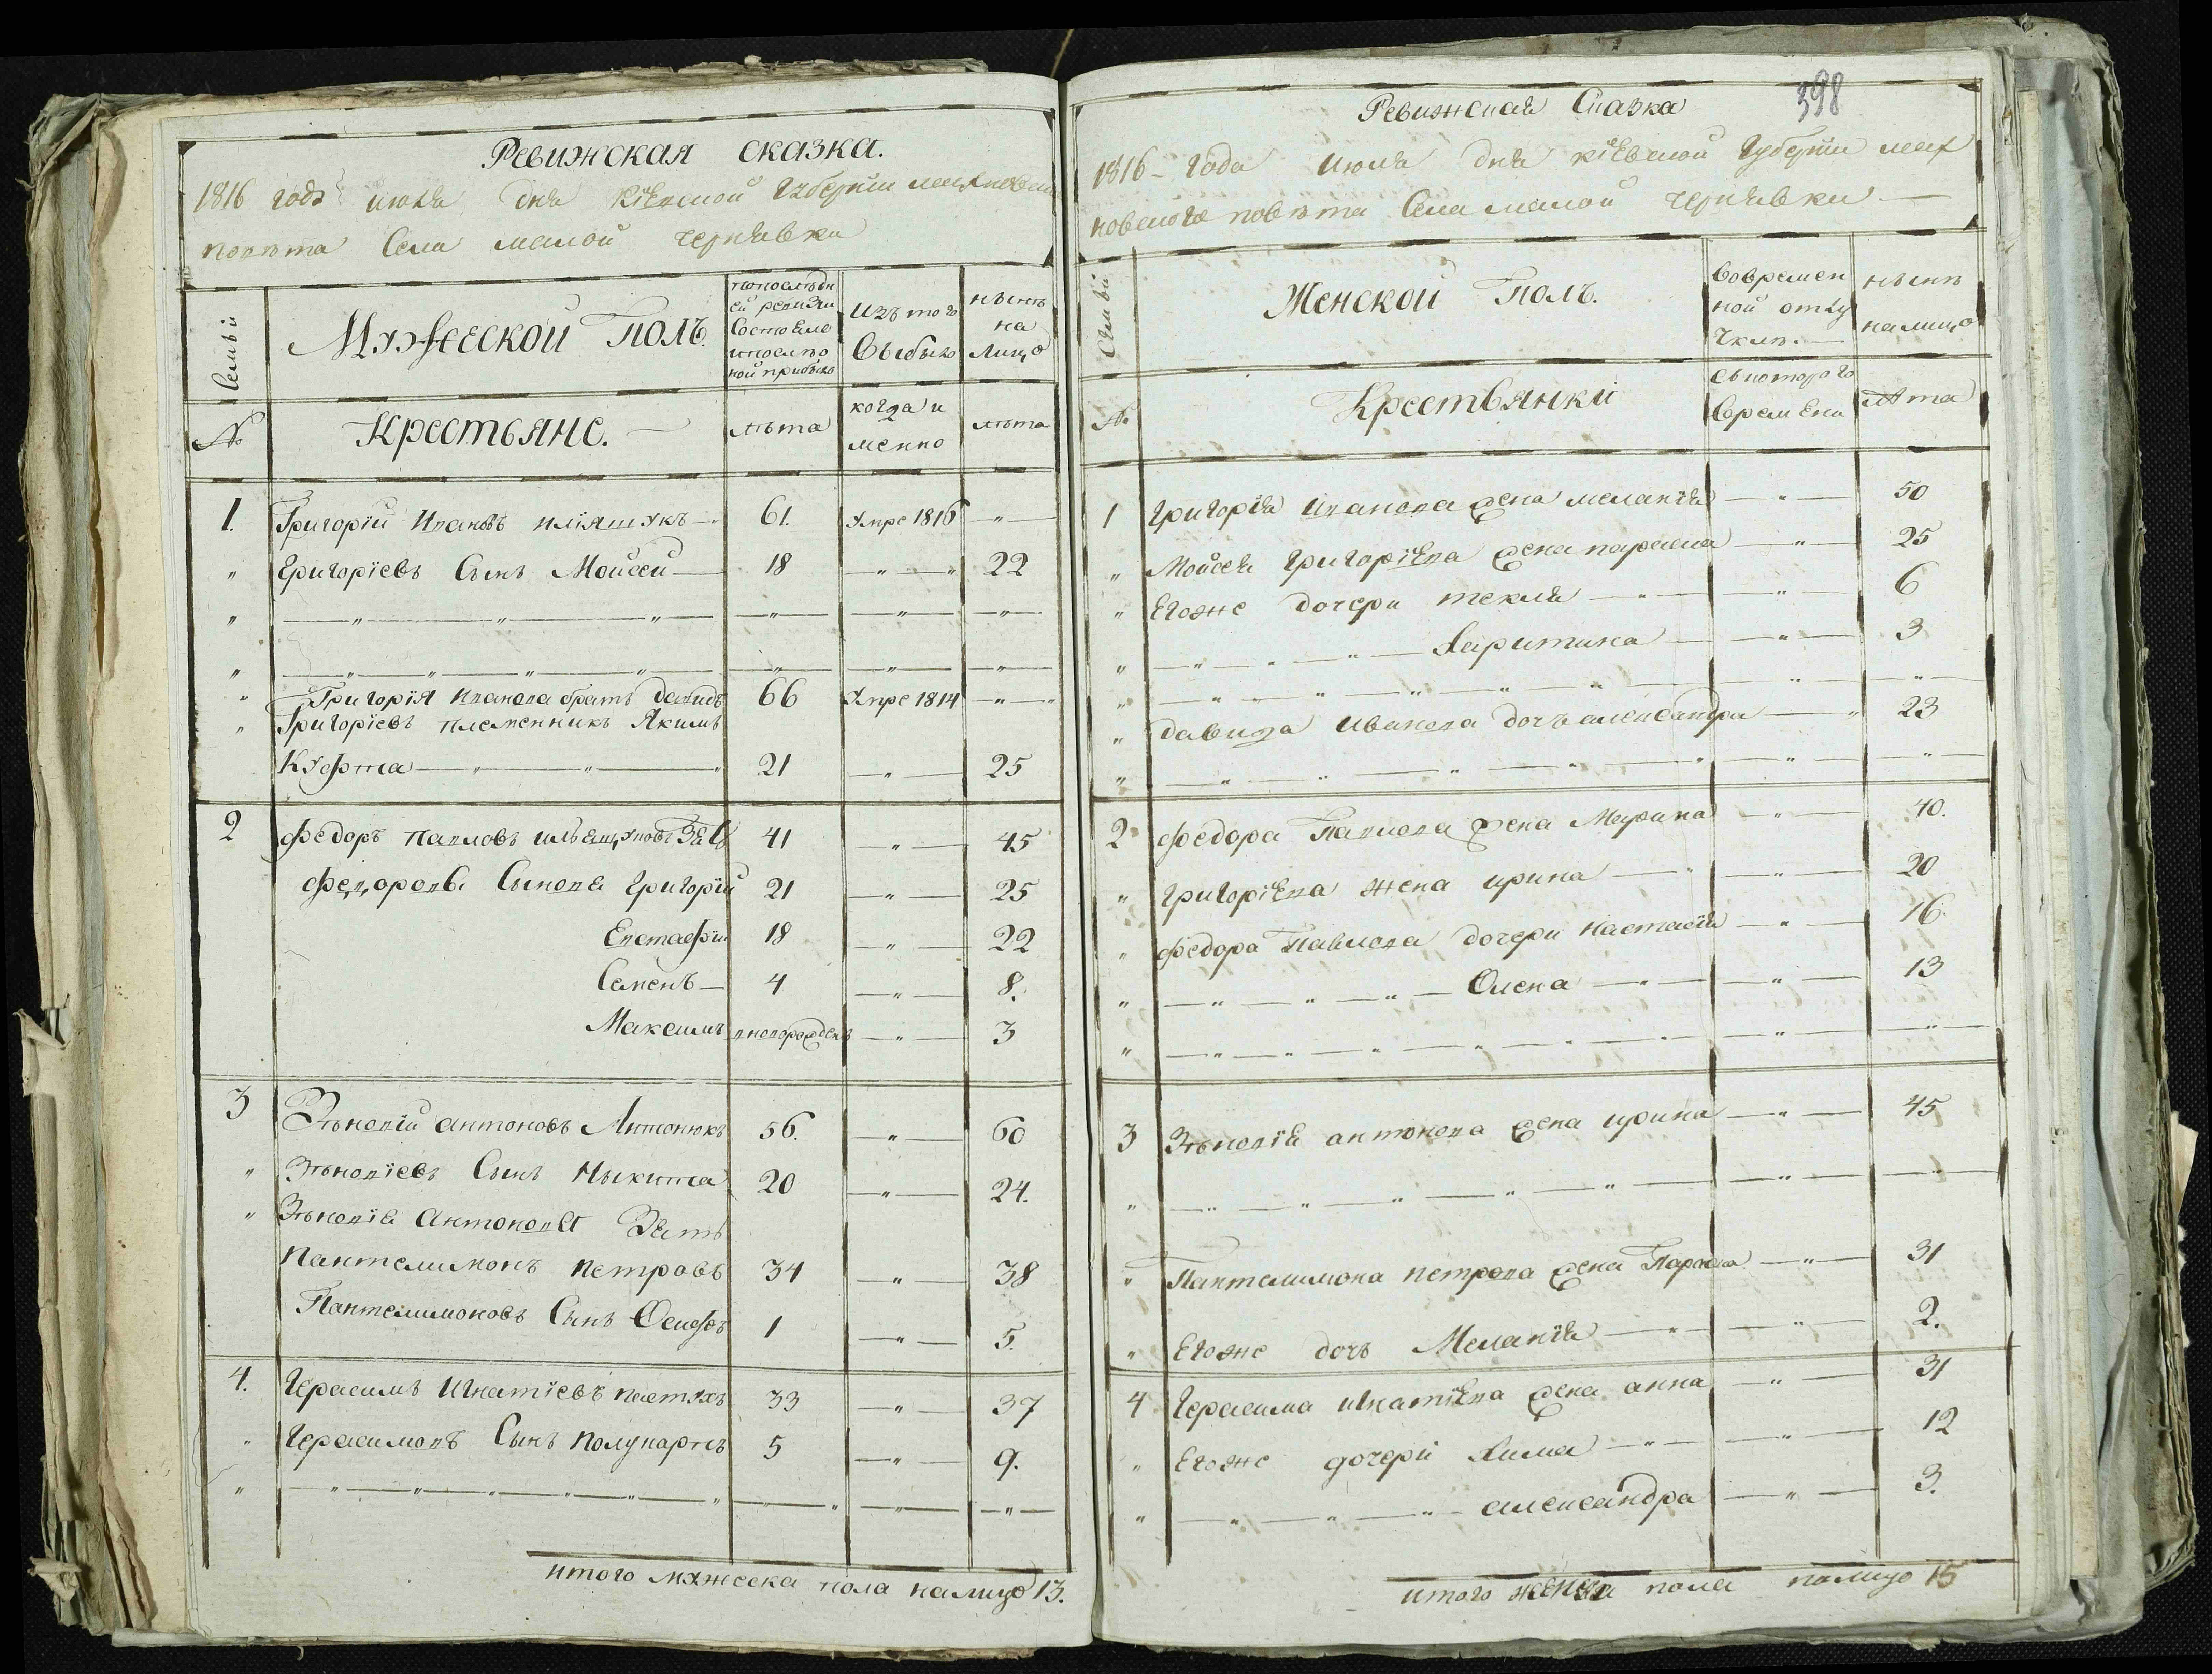 Ревижская сказка.
1816 года июля дня Кіевской Губерніи махновскаго
повѣта Села малой чернявки
Семьи
Мужеской Полъ.
попослѣдн
ей ревизіи
Состояло
ипослѣ
ной прибыло
Изъ того
Выбыло
нынѣ
на
Лицо
№
Крестьяне.
лѣта
когда и
менно
лѣта
1. Григорій Ивановъ 61. Умре 1816
Григоріевъ Сынъ Мойсей 18 22
Григорія Иванова братъ Давидъ 66 Умре 1814
Григоріевъ племенникъ Якимъ
Куфта 21 25
2 Федоръ Павловъ 41 45
Федоровы Сыновя Григорій 21 25
Евстафій 18 22
Семенъ 4 8.
Максимъ вноворожденъ 3
3 Зѣновій антоновъ Антонюкъ 56. 60
Зѣновіевъ Сынъ Ныкита 20 24.
Зѣновія Антонова Зять
Пантелимонъ Петровъ 34 38
Пантелимоновъ Сынъ Осифъ 1 5.
4. Герасимъ Игнатіевъ пастухъ 33 37
Герасимовъ Сынъ Полукарпъ 5 9.
итого мужеска пола налицо 13.
Ревижская Сказка 398
1816 года Июля дня кіевской Губерніи мах
новского повѣта Села малой чернявки
Семьи
Женской Полъ.
Вовремен
ной отлу
чкѣ.
нынѣ
налицо
№
Крестьянки
Съкоторого
Времени
лѣта
1 Григорія Иванова жена меланія 50
Мойсея Григоріева жена параска 25
Егоже дочери текля 6
Харитина 3
давида Иванова дочъ александра 23
2 Федора Павлова жена Марина 40.
Григоріева жена ирина 20
Федора Павлова дочери Настасія 16
Олена 13
3 Зѣновія антонова жена ирина 45
Пантелимона петрова жена Параска 31
Егоже дочъ Меланія 2.
4 Герасима игнатіева жена анна 31
Егоже дочери Хима 12
александра 3.
итого женска пола налицо 15